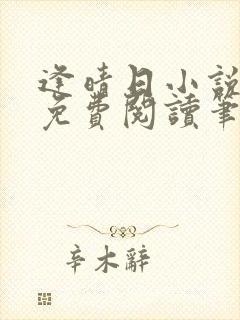 逢晴日小說
免費閱讀筆
辛木辭